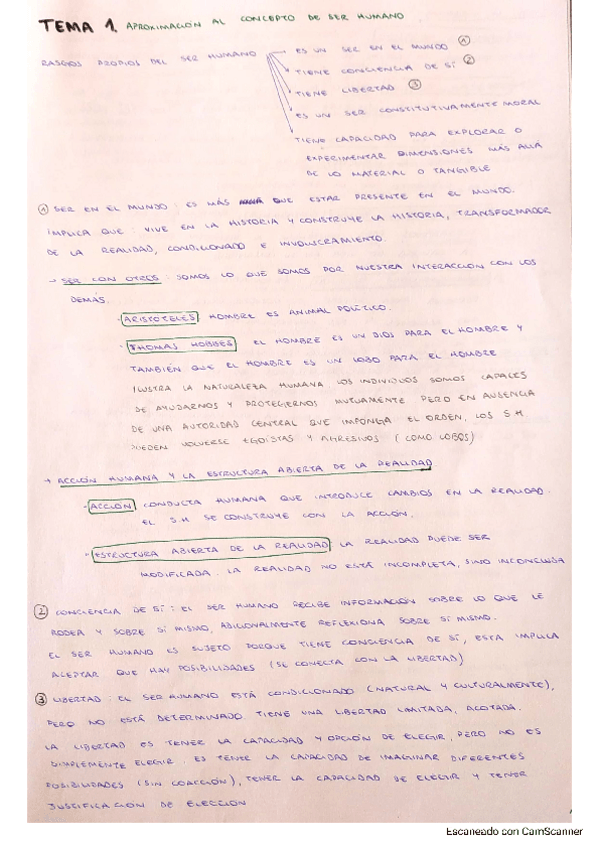 TEMA 1. APROXIMACIÓN AL CONCEPTO DE SER HUMANO
RASGOS PROPIOS DEL SER HUMANO
ES UN SER EN EL MUNDO ①
TIENE CONCIENCIA DE SÍ ②
TIENE LIBERTAD ③
ES UN SER CONSTITUTIVAMENTE MORAL
TIENE CAPACIDAD PARA EXPLORAR O
EXPERIMENTAR DIMENSIONES MÁS ALLÁ
DE LO MATERIAL O TANGIBLE
① SER EN EL MUNDO: ES MÁS QUE ESTAR PRESENTE EN EL MUNDO.
IMPLICA QUE: VIVE EN LA HISTORIA Y CONSTRUYE LA HISTORIA, TRANSFORMADOR
DE LA REALIDAD, CONDICIONADO E INVOLUCRAMIENTO.
→ SER CON OTROS: SOMOS LO QUE SOMOS POR NUESTRA INTERACCIÓN CON LOS
DEMÁS.
- ARISTÓTELES HOMBRE ES ANIMAL POLÍTICO.
- THOMAS HOBBES EL HOMBRE ES UN DIOS PARA EL HOMBRE Y
TAMBIÉN QUE EL HOMBRE ES UN LOBO PARA EL HOMBRE
ILUSTRA LA NATURALEZA HUMANA. LOS INDIVIDUOS SOMOS CAPACES
DE AYUDARNOS Y PROTEGERNOS MUTUAMENTE PERO EN AUSENCIA
DE UNA AUTORIDAD CENTRAL QUE IMPONGA EL ORDEN, LOS S.H
PUEDEN VOLVERSE EGOÍSTAS Y AGRESIVOS (COMO LOBOS)
→ ACCIÓN HUMANA Y LA ESTRUCTURA ABIERTA DE LA REALIDAD.
- ACCIÓN CONDUCTA HUMANA QUE INTRODUCE CAMBIOS EN LA REALIDAD.
EL S.H SE CONSTRUYE CON LA ACCIÓN.
- ESTRUCTURA ABIERTA DE LA REALIDAD LA REALIDAD PUEDE SER
MODIFICADA. LA REALIDAD NO ESTÁ INCOMPLETA, SINO INCONCLUIDA
② CONCIENCIA DE SÍ: EL SER HUMANO RECIBE INFORMACIÓN SOBRE LO QUE LE
RODEA Y SOBRE SÍ MISMO, ADICIONALMENTE REFLEXIONA SOBRE SÍ MISMO.
EL SER HUMANO ES SUJETO PORQUE TIENE CONCIENCIA DE SÍ, ESTA IMPLICA
ACEPTAR QUE HAY POSIBILIDADES (SE CONECTA CON LA LIBERTAD)
③ LIBERTAD: EL SER HUMANO ESTÁ CONDICIONADO (NATURAL Y CULTURALMENTE),
PERO NO ESTÁ DETERMINADO. TIENE UNA LIBERTAD LIMITADA, ACOTADA.
LA LIBERTAD ES TENER LA CAPACIDAD Y OPCIÓN DE ELEGIR, PERO NO ES
SIMPLEMENTE ELEGIR. ES TENER LA CAPACIDAD DE IMAGINAR DIFERENTES
POSIBILIDADES (SIN COACCIÓN), TENER LA CAPACIDAD DE ELEGIR Y TENER
JUSTIFICACIÓN DE ELECCIÓN
Escaneado con CamScanner